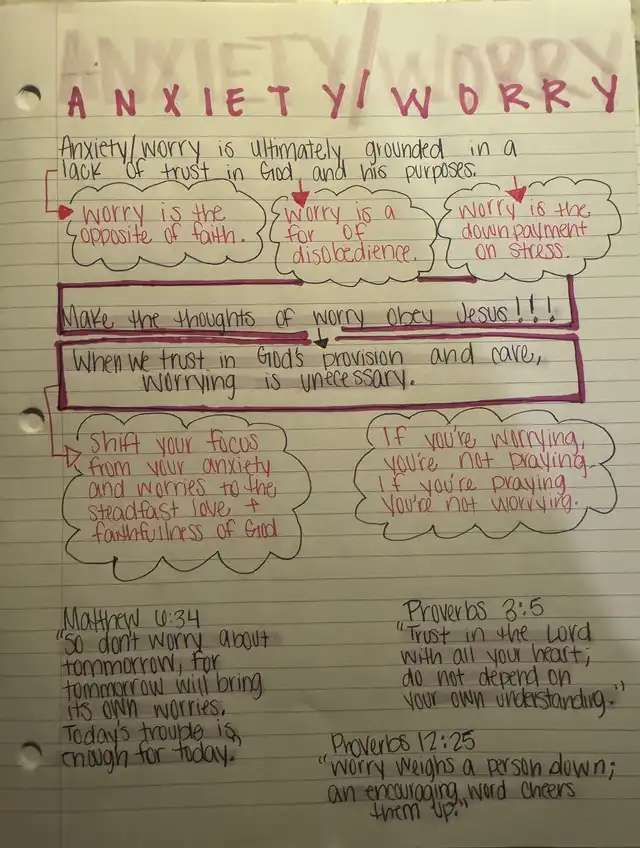 ANXIETY/WORRY
ANXIETY/WORRY
Anxiety/worry is ultimately grounded in a
lack of trust in God and his purposes.
Worry is the
opposite of faith.
Worry is a
for of
disobedience.
Worry is the
down payment
on stress.
Make the thoughts of worry obey Jesus!!!
When we trust in God's provision and care,
worrying is unecessary.
Shift your focus
from your anxiety
and worries to the
steadfast love +
faithfulness of God
If you're worrying,
you're not praying.
If you're praying
you're not worrying.
Matthew 6:34
"So don't worry about
tommorrow, for
tommorrow will bring
its own worries.
Today's trouble is
enough for today."
Proverbs 3:5
"Trust in the Lord
with all your heart;
do not depend on
your own understanding."
Proverbs 12:25
"Worry weighs a person down;
an encouraging word cheers
them up."